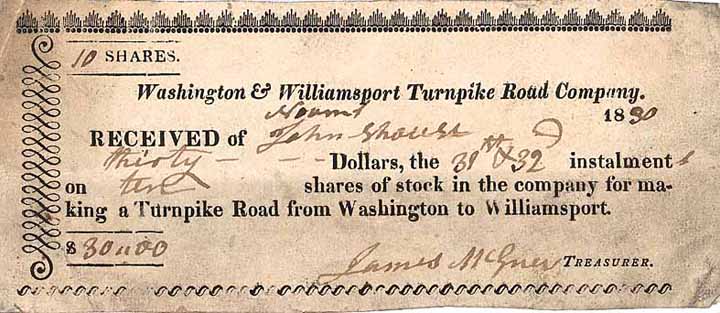 10 SHARES.
Washington & Williamsport Turnpike Road Company.
1830
RECEIVED of John
thirty Dollars, the 31st & 32d instalment
on ten shares of stock in the company for ma-
king a Turnpike Road from Washington to Williamsport.
$ 30,,00
James TREASURER.